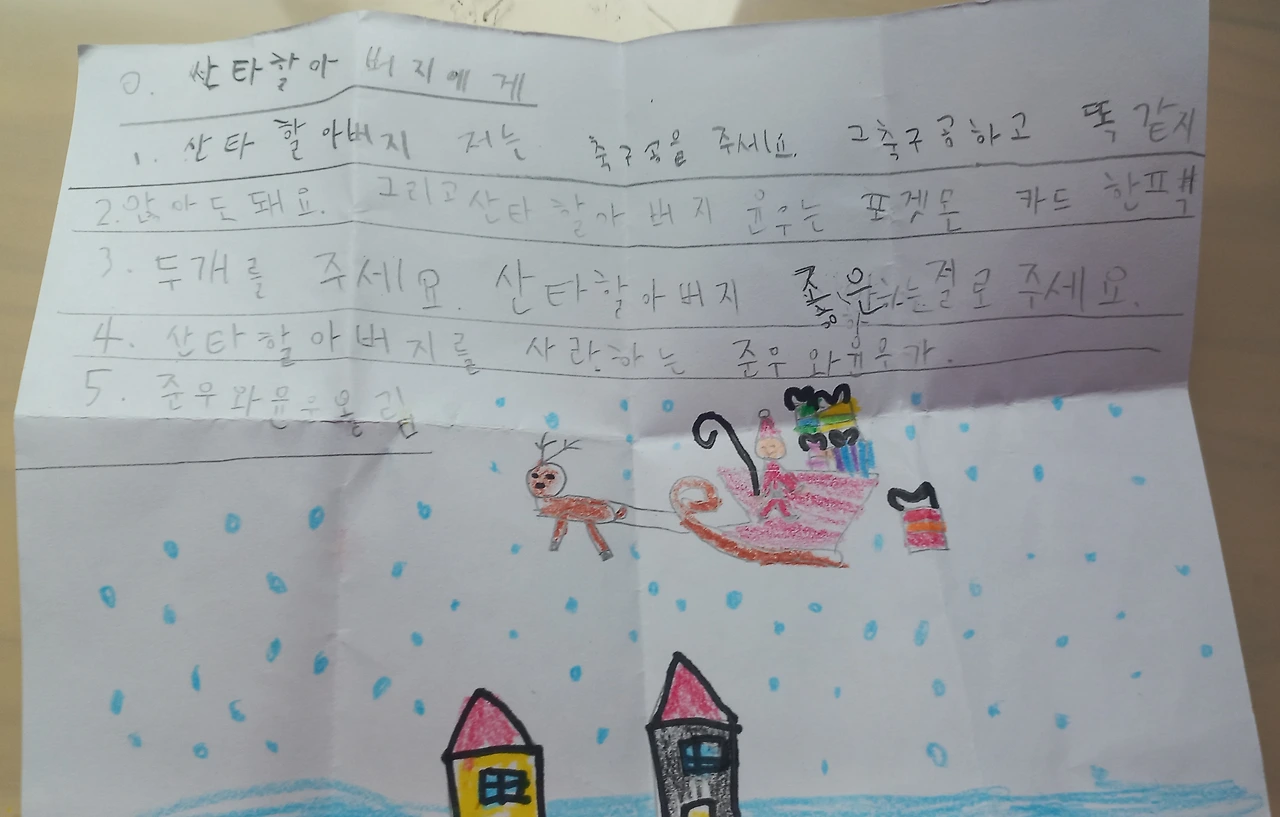 0. 산타할아버지에게
1. 산타할아버지 저는 축구공을 주세요. 그축구공하고 똑같지
2. 않아도돼요. 그리고산타할아버지 윤우는 포켓몬 카드 한프팩
3. 두개를 주세요. 산타할아버지 하는걸로 주세요.
4. 산타할아버지를 사랑하는 준우와윤우가.
5. 준우와윤우올림